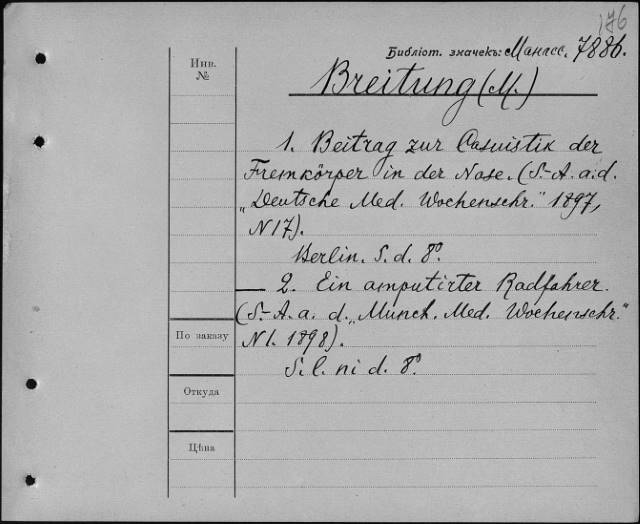 Библіот. значекъ: Манасс. 7886.
Инв.
№
Breitung (M.)
1. Beitrag zur Casuistik der
Fremkörper in der Nase. (S.-A. a. d.
„Deutsche Med. Wochenschr." 1897,
N17).
Berlin. S. d. 8º.
— 2. Ein amputirter Radfahrer.
(S.-A. a. d. „Münch. Med. Wochenschr."
N1. 1898).
S. l. ni d. 8º.
По заказу
Откуда
Цѣна